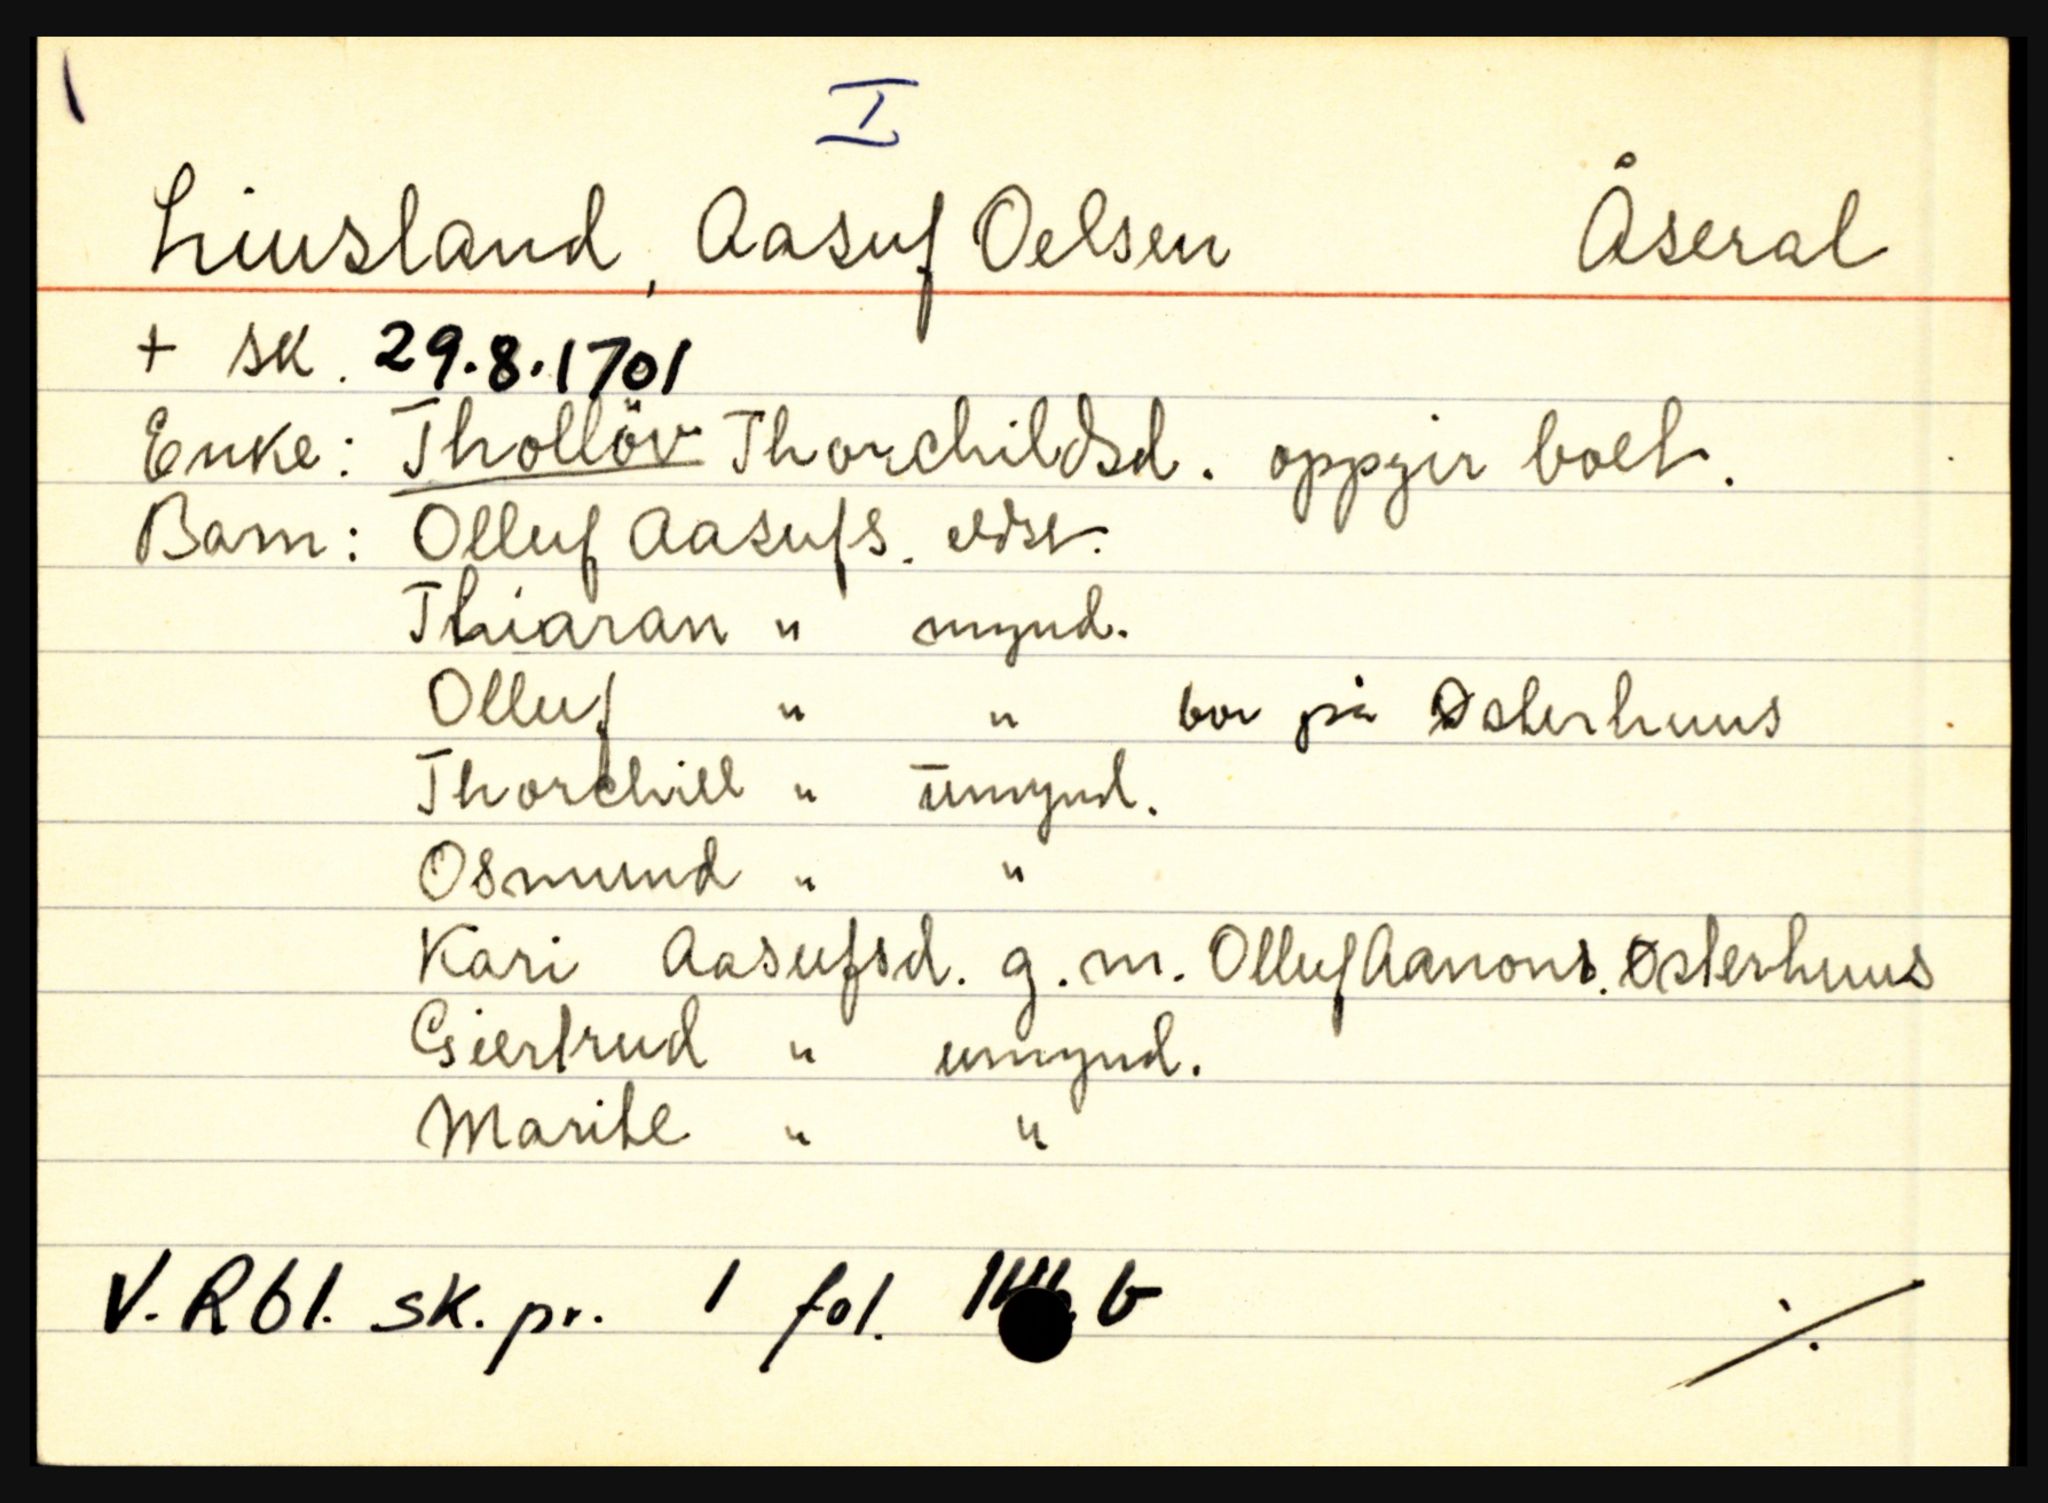 I
Liusland, Aasuf Oelsen Åseral
+ sk. 29.8.1701
Enke: Thollöv Thorchildsd. oppgir boet.
Barn: Olluf Aasufs. eldst.
Thiaran " mynd.
Olluf " " bor på Østerhuus
Thorchill " umynd.
Osmund " "
Kari Aasufsd. g.m. Olluf Aanons. Østerhuus
Giertrud " umynd.
Marite " "
V.Rbl. sk.pr. 1 fol. b